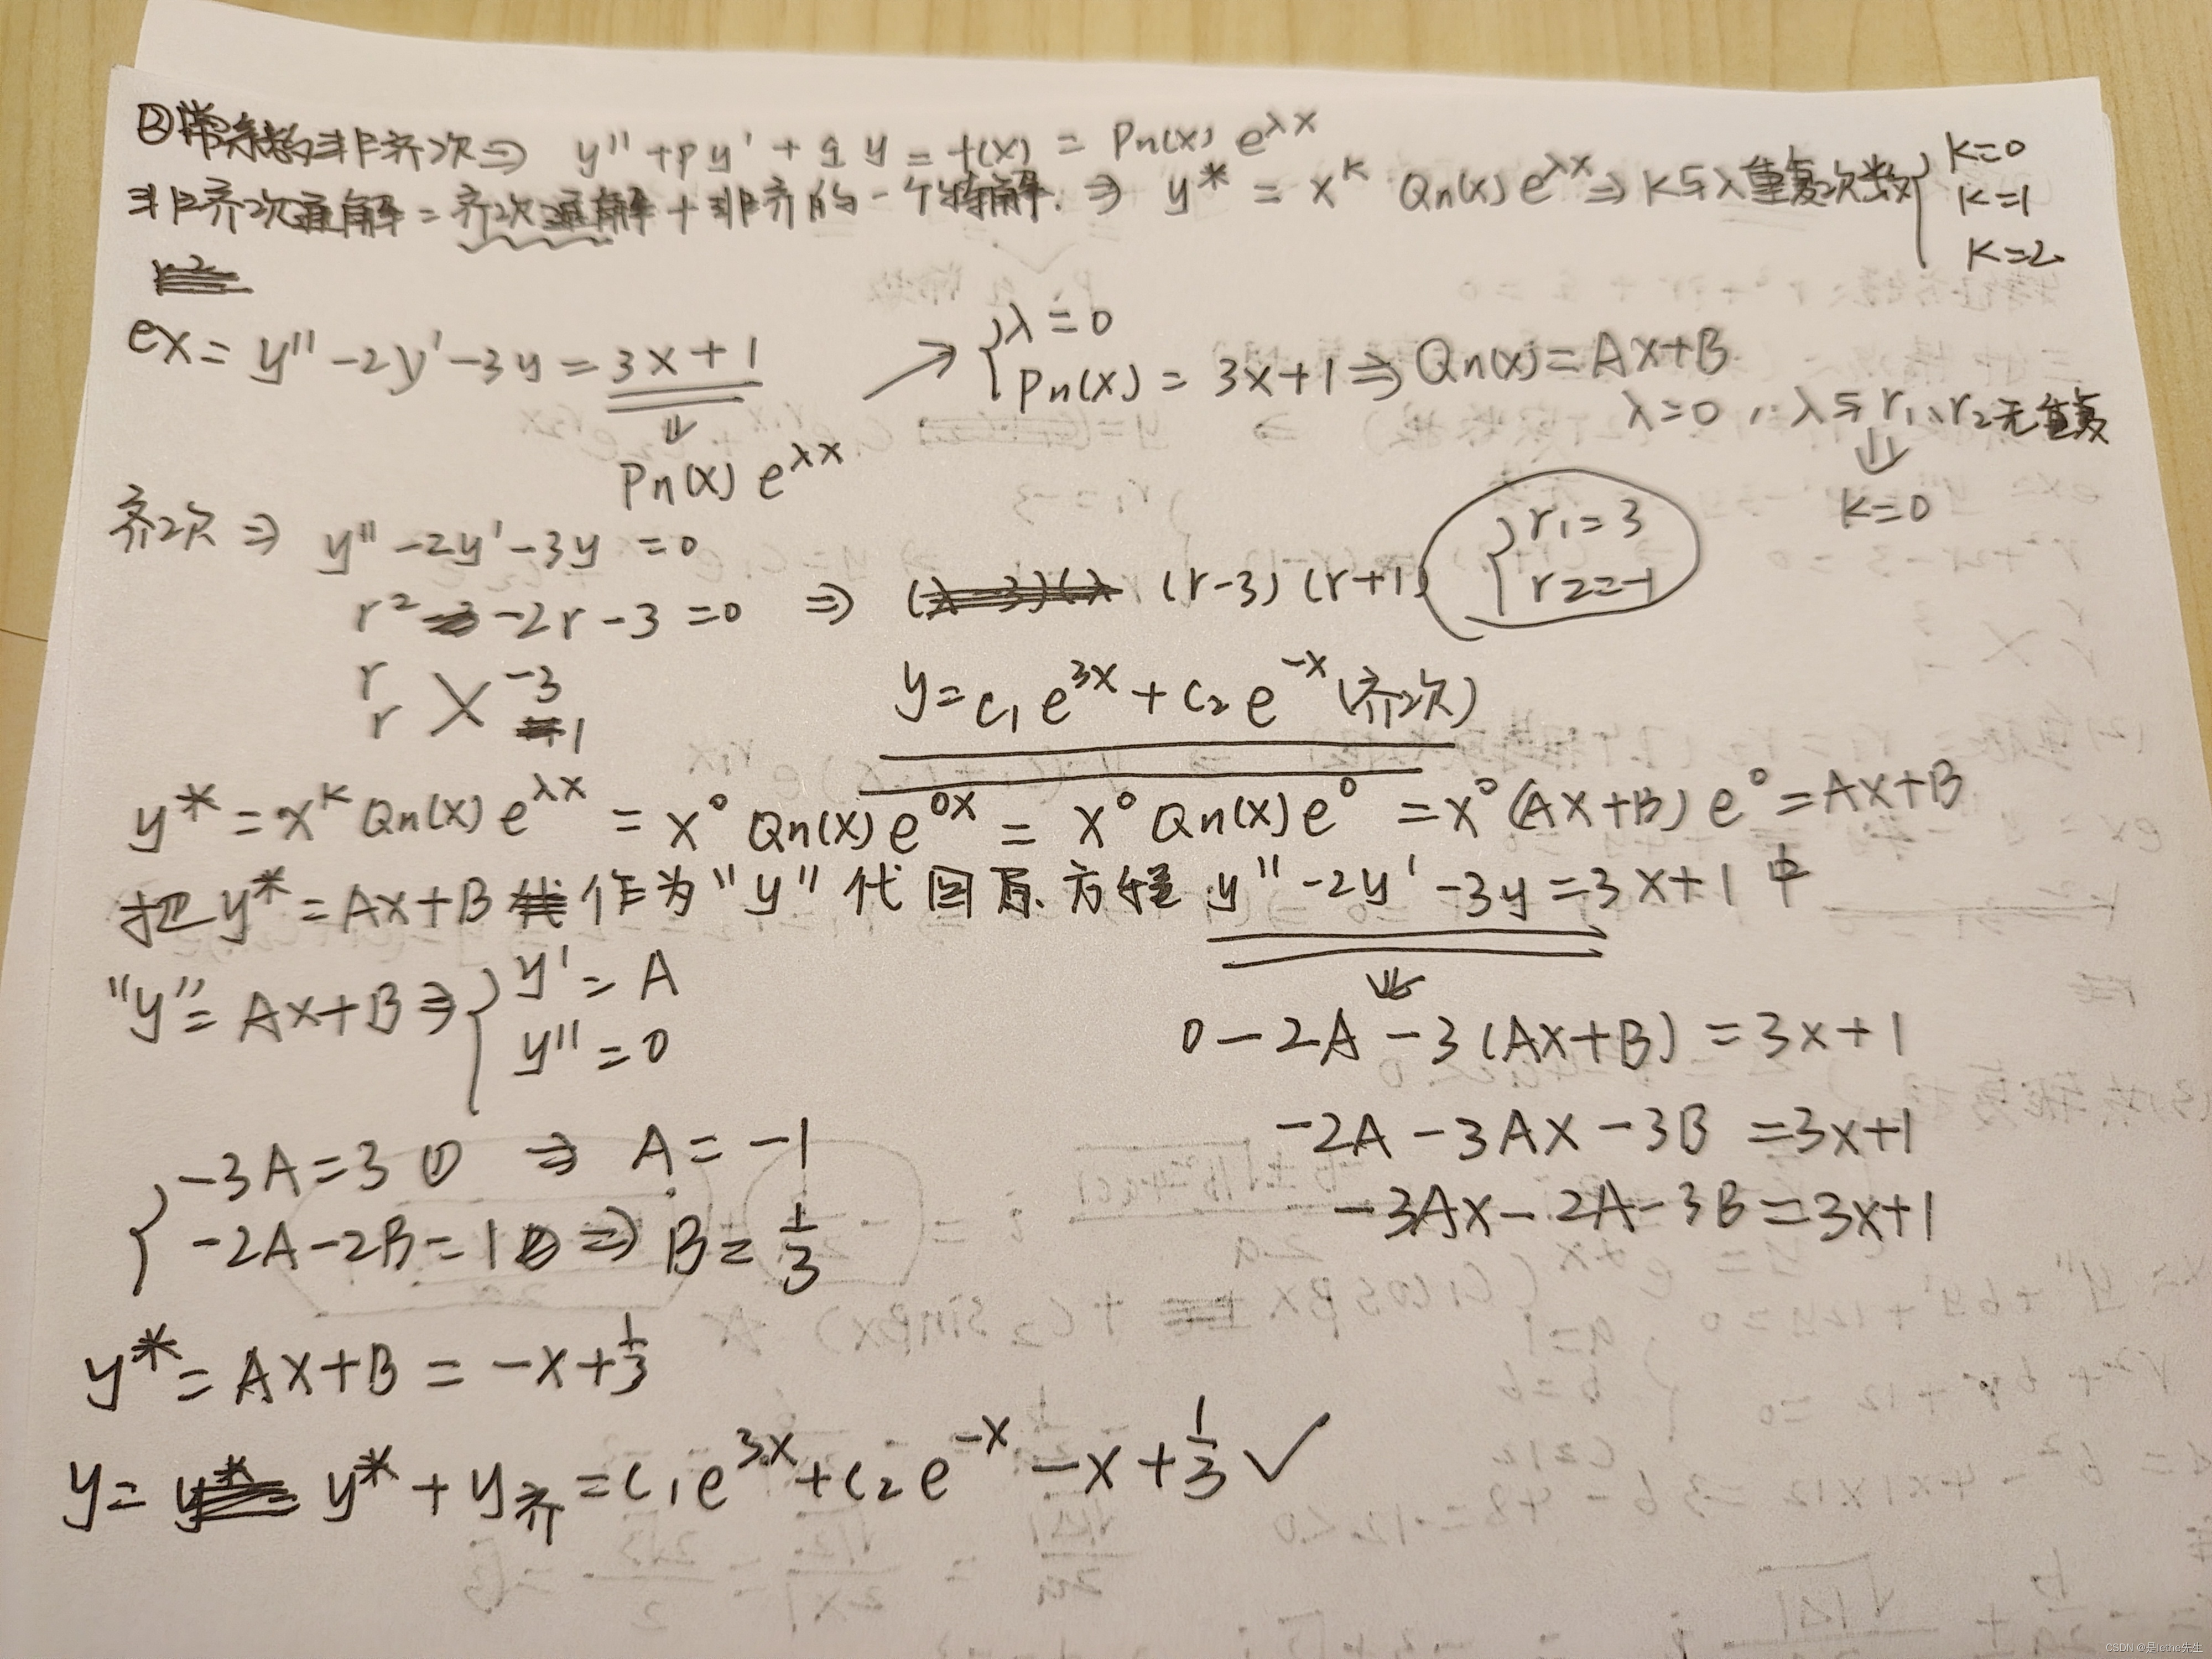 ②常系数非齐次⇒ y''+py'+qy=f(x)=Pn(x)e^λx
非齐次通解=齐次通解+非齐的一个特解.⇒ y*=x^k Qn(x)e^λx⇒k与λ重复次数{k=0 k=1 k=2
ex=y''-2y'-3y=3x+1 → {λ=0 Pn(x)=3x+1⇒Qn(x)=Ax+B
λ=0,∴λ与r1、r2无重复
⇓
⇓
Pn(x)e^λx
k=0
齐次⇒ y''-2y'-3y=0
r²-2r-3=0 ⇒ (r-3)(r+1) {r1=3 r2=-1
r -3
r 1
y=c1e^3x+c2e^-x(齐次)
y*=x^k Qn(x)e^λx=x^0 Qn(x)e^0x=x^0 Qn(x)e^0=x^0(Ax+B)e^0=Ax+B
把y*=Ax+B作为"y"代回原方程y''-2y'-3y=3x+1中
⇓
"y"=Ax+B⇒{y'=A y''=0
0-2A-3(Ax+B)=3x+1
-2A-3Ax-3B=3x+1
-3Ax-2A-3B=3x+1
{-3A=3① ⇒ A=-1
-2A-2B=1②⇒B=1/3
y*=Ax+B=-x+1/3
y=y*+y齐=c1e^3x+c2e^-x-x+1/3✓
CSDN @是lethe先生